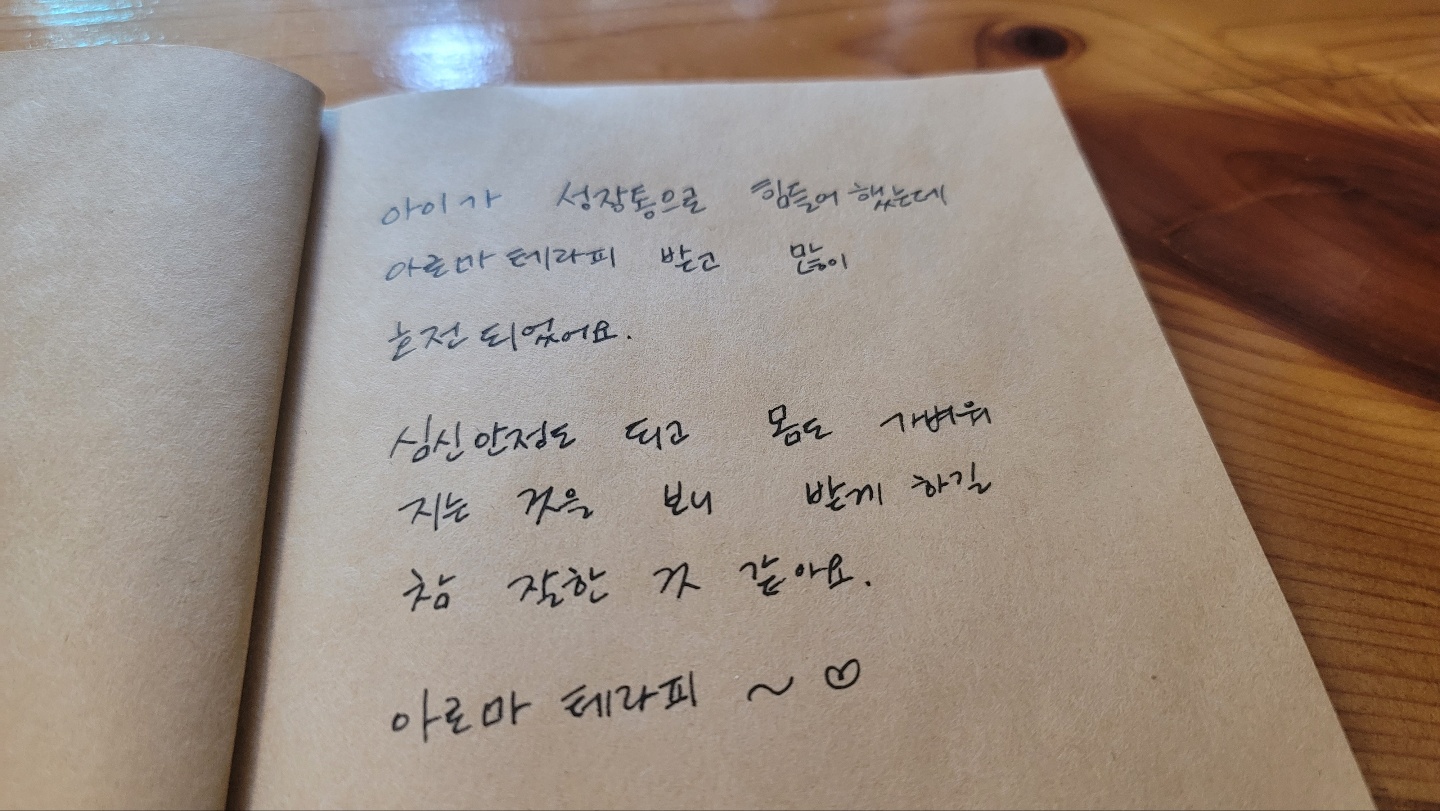 아이가 성장통으로 힘들어 했는데
아로마 테라피 받고 많이
호전 되었어요.
심신안정도 되고 몸도 가벼워
지는 것을 보니 받게 하길
참 잘한 것 같아요.
아로마 테라피 ~ ♡